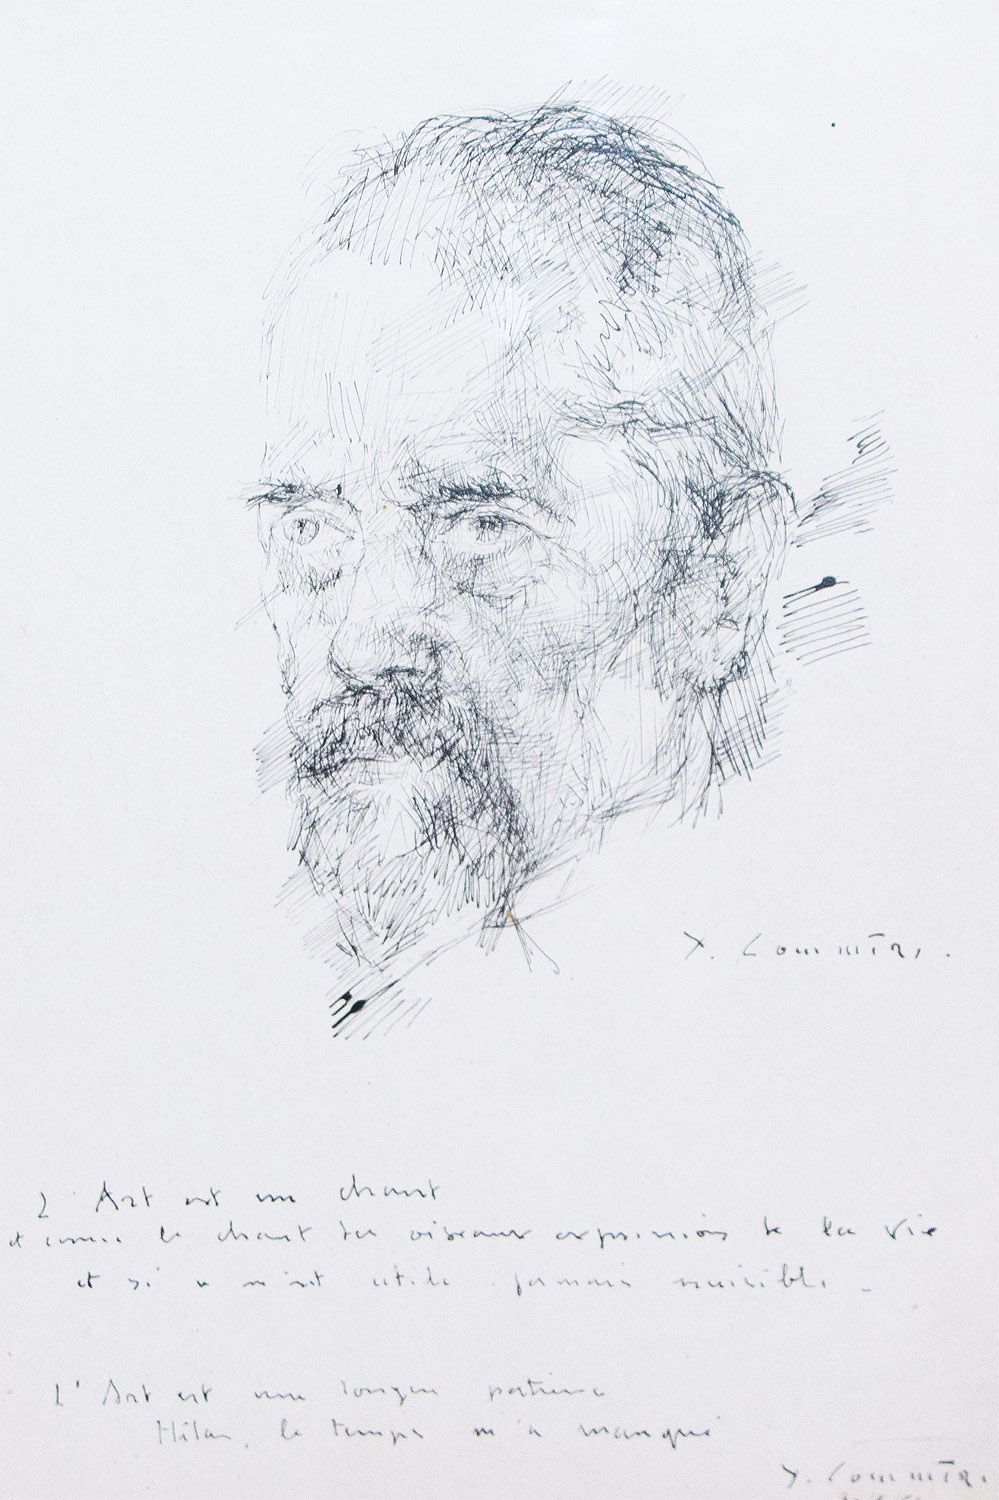 Y. Commère.
L'Art est un chant
et comme le chant des oiseaux expression de la vie
et si ce n'est utile jamais nuisible.
L'Art est une longue patience
Hélas, le temps m'a manqué
Y. Commère.